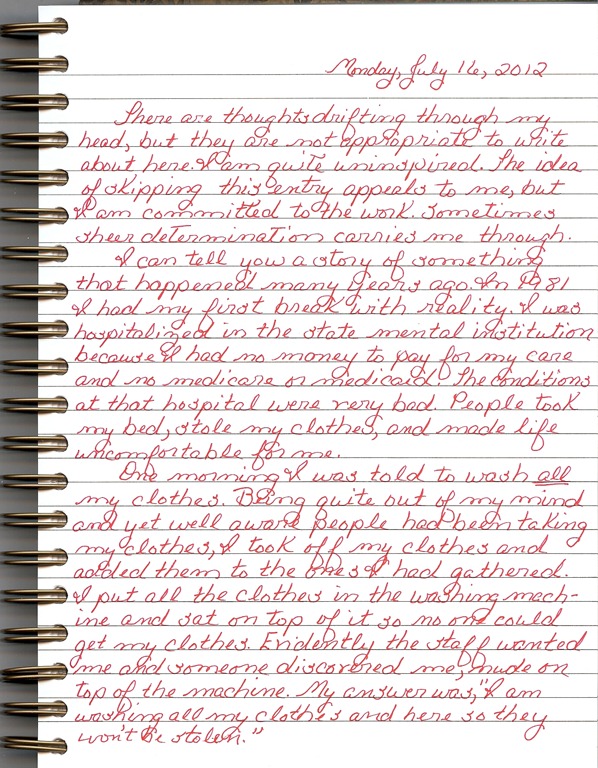 Monday, July 16, 2012
There are thoughts drifting through my
head, but they are not appropriate to write
about here. I am quite uninspired. The idea
of skipping this entry appeals to me, but
I am committed to the work. Sometimes
sheer determination carries me through.
I can tell you a story of something
that happened many years ago. In 1981
I had my first break with reality. I was
hospitalized in the state mental institution
because I had no money to pay for my care
and no medicare or medicaid. The conditions
at that hospital were very bad. People took
my bed, stole my clothes, and made life
uncomfortable for me.
One morning I was told to wash all
my clothes. Being quite out of my mind
and yet well aware people had been taking
my clothes, I took off my clothes and
added them to the ones I had gathered.
I put all the clothes in the washing mach-
ine and sat on top of it so no one could
get my clothes. Evidently the staff wanted
me and someone discovered me, nude on
top of the machine. My answer was, "I am
washing all my clothes and here so they
won't be stolen."